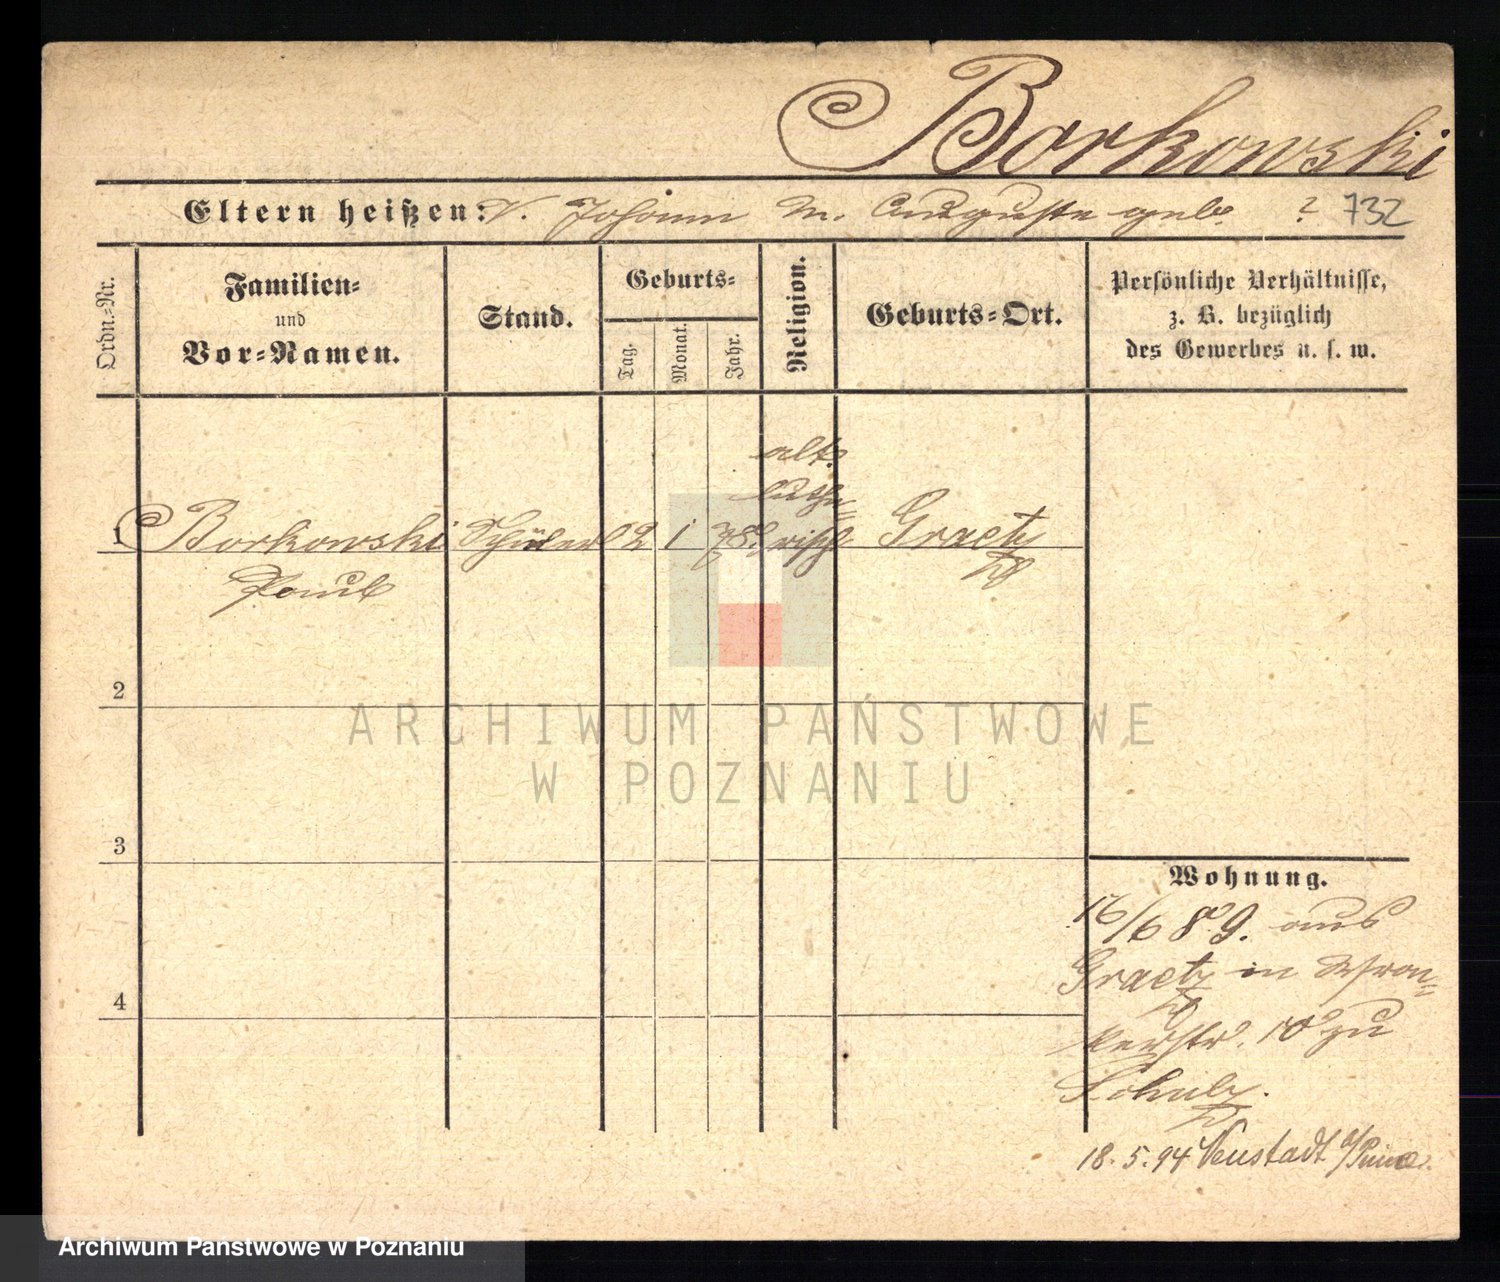 Borkowski
Eltern heißen: V. Johann M. Auguste geb. ? 732
Ordn.-Nr.
Familien-
und
Vor-Namen.
Stand.
Geburts-
Tag.
Monat.
Jahr.
Religion.
Geburts-Ort.
Persönliche Verhältnisse,
z. B. bezüglich
des Gewerbes u. s. w.
alt.
luthe=
1 Borkowski Schüler 2 1 78 risch Graetz
Paul
2
3
4
Wohnung.
16/6 89. aus
Graetz in Wron=
kerstr. 10 zu
Schulz.
18.5.94 Neustadt a/Pinne
ARCHIWUM PAŃSTWOWE
W POZNANIU
Archiwum Państwowe w Poznaniu